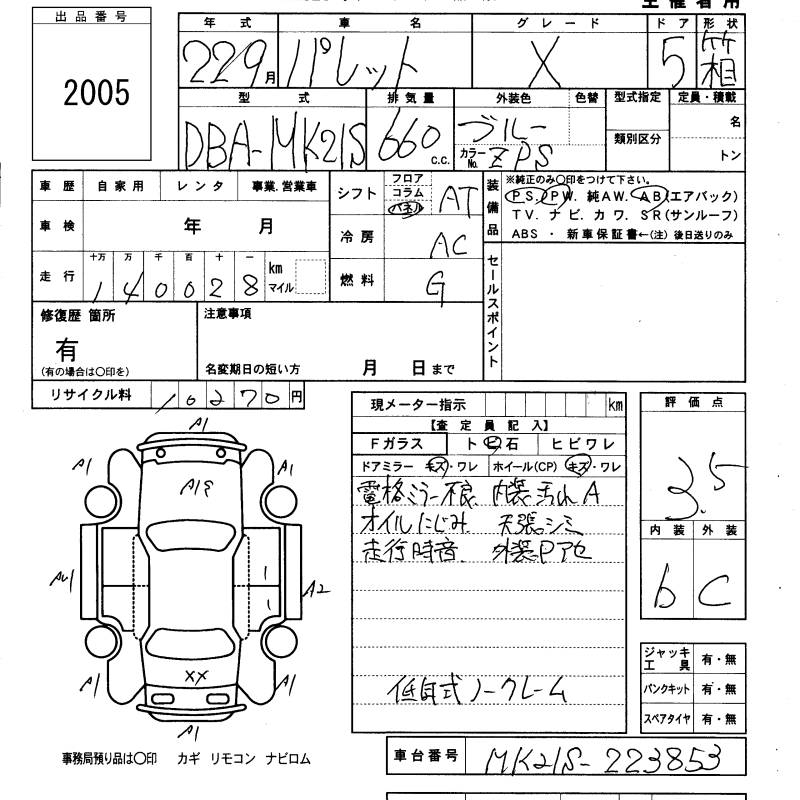 出品番号
2005
年式 車名 グレード ドア 形状
229月 パレット X 5 箱
型式 排気量 外装色 色替 型式指定 定員・積載
DBA-MK21S 660 c.c. ブルー カラーNo. ZPS 類別区分 名
トン
車歴 自家用 レンタ 事業.営業車
車検 年 月
走行 十万 万 千 百 十 一 km マイル
140028
シフト フロア コラム パネル AT
冷房 AC
燃料 G
装備品 ※純正のみ〇印をつけて下さい。
PS. PW. 純AW. AB(エアバック)
TV. ナビ. カワ. SR(サンルーフ)
ABS ・ 新車保証書←(注) 後日送りのみ
セールスポイント
修復歴 箇所
有
(有の場合は〇印を)
注意事項
名変期日の短い方 月 日まで
リサイクル料 10270円
現メーター指示 km
【査定員記入】
Fガラス トビ石 ヒビワレ
ドアミラー キズ・ワレ ホイール(CP) キズ・ワレ
電格ミラー不良. 内装汚れA
オイルにじみ. 天張シミ
走行時音. 外装Pアセ
低年式ノークレーム
評価点
3.5
内装 外装
b C
ジャッキ工具 有・無
パンクキット 有・無
スペアタイヤ 有・無
A1
A1 A1
A19
A2
XX
A1 A1
A1
事務局預り品は〇印 カギ リモコン ナビロム
車台番号 MK21S-223853